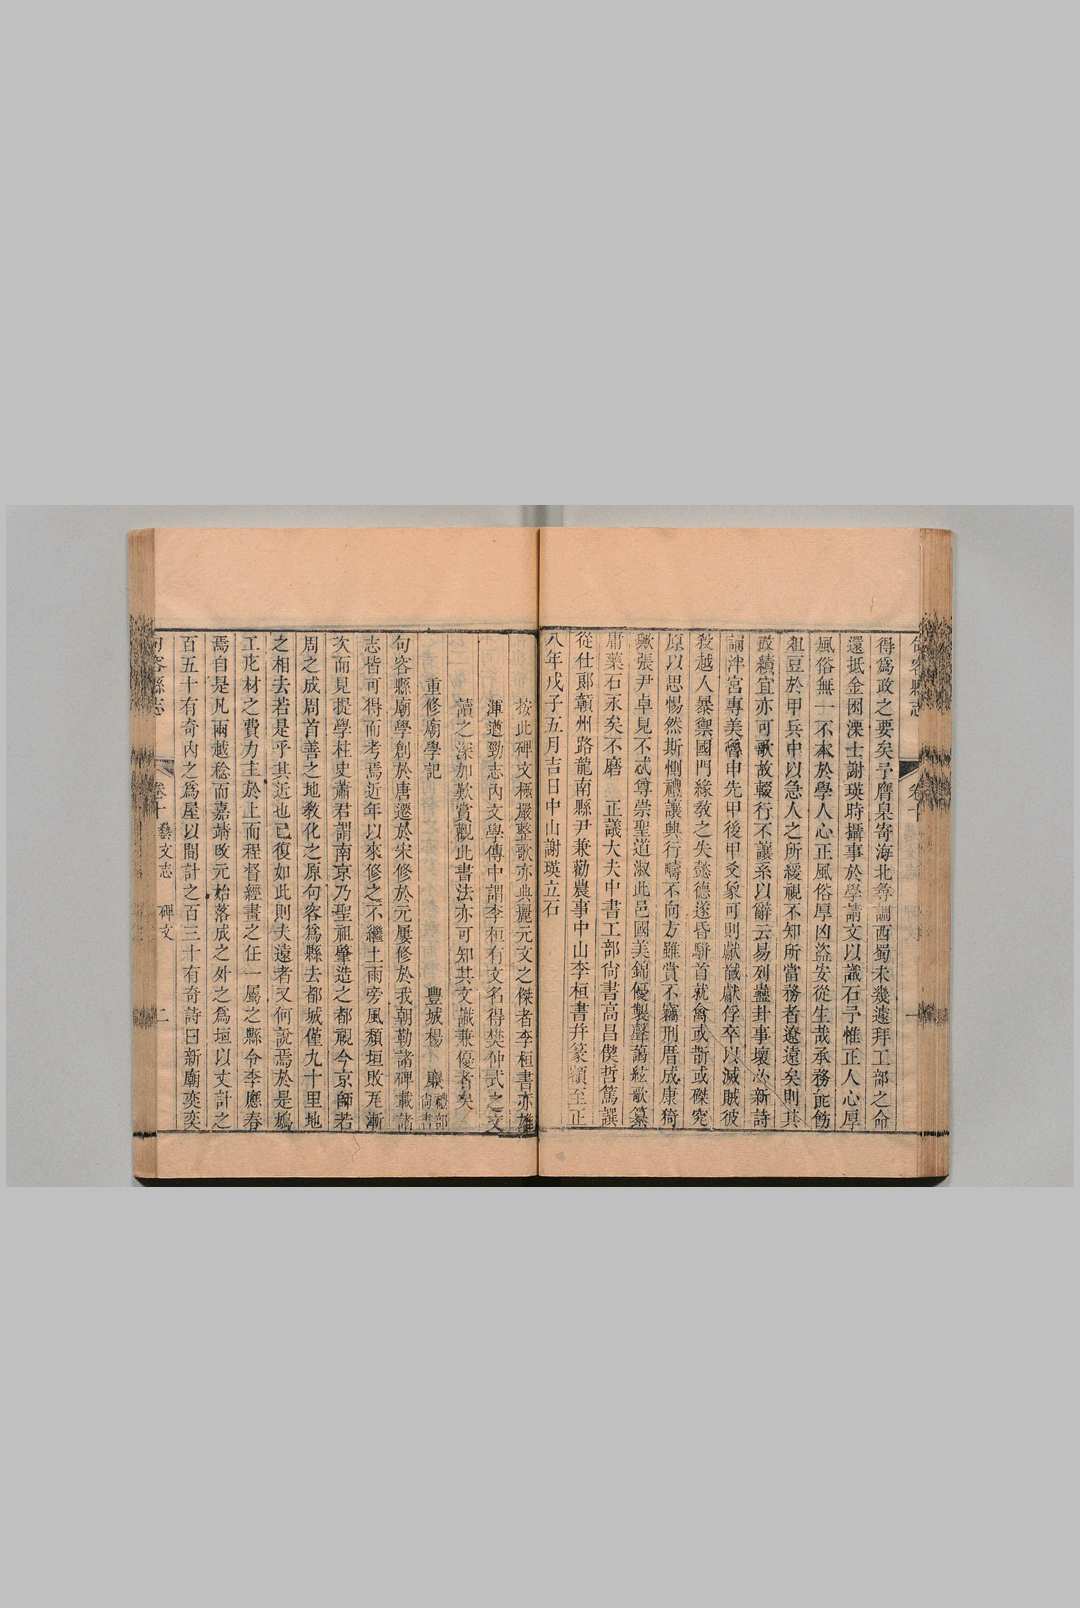 得爲政之要矣予膺臬寄海北尋調西蜀未幾遠拜工部之命
還抵金困溧士謝瑛時攝事於學請文以識石予惟正人心厚
風俗無一不本於學人心正風俗厚凶盜安從生哉承務能飭
俎豆於甲兵中以急人之所緩視不知所當務者遼遠矣則其
政績宜亦可歌故輟行不讓系以辭云易列蠱卦事壞必新詩
詞泮宮專美魯申先甲後甲爻象可則獻馘獻俘卒以滅賊彼
殺越人暴禦國門緣教之失懿德遂昏駢首就禽或斮或磔究
原以思惕然斯惻禮讓興行疇不向方雖賞不竊刑厝成康猗
歟張尹卓見不忒尊崇聖道淑此邑國美錦優製聲蔼絃歌纂
庸樂石永矣不磨 正議大夫中書工部尙書高昌偰哲篤譔
從仕郞贛州路龍南縣尹兼勸農事中山李桓書幷篆額至正
八年戊子五月吉日中山謝瑛立石
按此碑文極嚴整歌亦典麗元文之傑者李桓書亦雄
渾遒勁志內文學傳中謂李桓有文名得樊仲式之文
讀之深加歎賞觀此書法亦可知其文識兼優者矣
重修廟學記 豐城楊 廉禮部尙書
句容縣廟學創於唐遷於宋修於元屢修於我朝勒諸碑載諸
志皆可得而考焉近年以來修之不繼上雨旁風頽垣敗瓦漸
次而見提學柱史蕭君謂南京乃聖祖肇造之都視今京師若
周之成周首善之地教化之原句容爲縣去都城僅九十里地
之相去若是乎其近也已復如此則夫遠者又何説焉於是鳩
工庀材之費力主於上而程督經畫之任一屬之縣令李應春
焉自是凡兩越稔而嘉靖改元始落成之外之爲垣以丈計之
百五十有奇內之爲屋以間計之百三十有奇詩曰新廟奕奕
句容縣志 卷十 藝文志 碑文 二